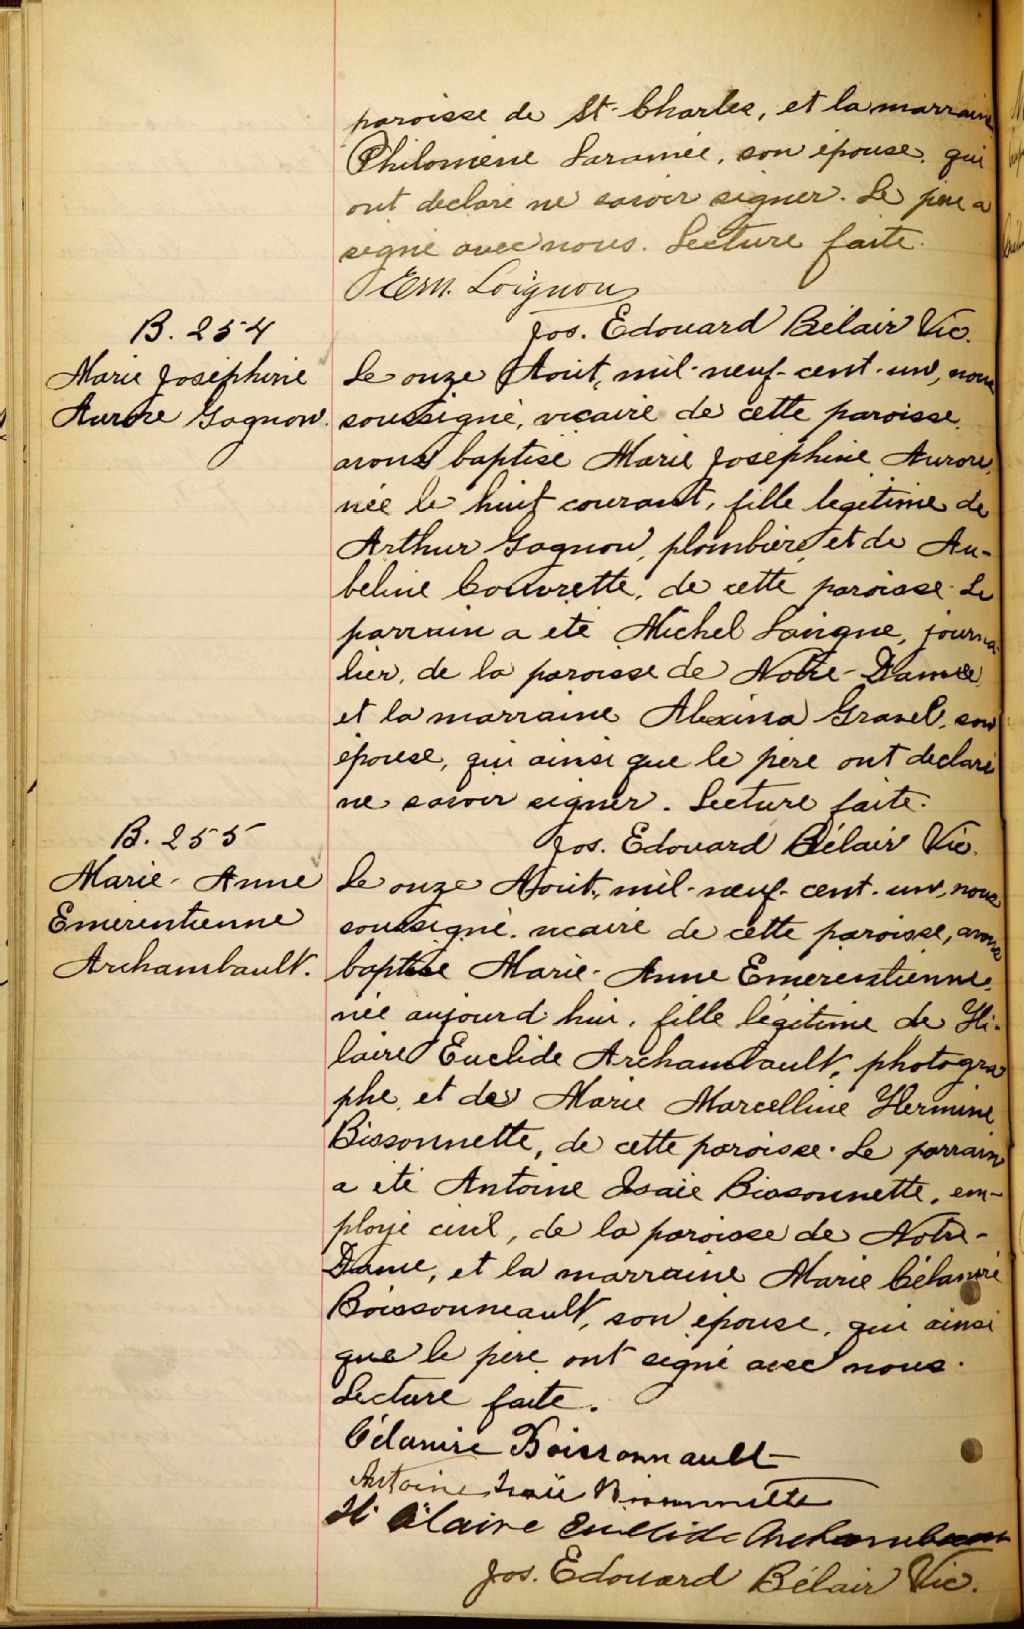 paroisse de St-Charles, et la marraine
Philomène Laramée, son épouse, qui
ont declaré ne savoir signer. Le père a
signé avec nous. Lecture faite.
Ern. Loignon
Jos. Edouard Bélair Vic.
B. 254
Marie Joséphine
Aurore Gagnon.
Le onze Août, mil-neuf-cent-un, nous
soussigné, vicaire de cette paroisse,
avons baptisé Marie Joséphine Aurore,
née le huit courant, fille légitime de
Arthur Gagnon, plombier, et de Au-
beline Couvrette, de cette paroisse. Le
parrain a été Michel Lavigne, journa-
lier, de la paroisse de Notre-Dame,
et la marraine Alexina Gravel, son
épouse, qui ainsi que le père ont declaré
ne savoir signer. Lecture faite.
Jos. Edouard Bélair Vic.
B. 255
Marie-Anne
Emérentienne
Archambault.
Le onze Août, mil-neuf-cent-un, nous
soussigné, vicaire de cette paroisse, avons
baptisé Marie-Anne Emerentienne,
née aujourd'hui, fille légitime de Hi-
laire Euclide Archambault, photogra
phe, et de Marie Marcelline Hermine
Bissonnette, de cette paroisse. Le parrain
a été Antoine Isaïe Bissonnette, em-
ployé civil, de la paroisse de Notre-
Dame, et la marraine Marie Célanire
Boissonneault, son épouse, qui ainsi
que le père ont signé avec nous.
Lecture faite.
Célanire Boissonnault
Antoine Isaïe Bissonnette
Hilaire Euclide Archambault
Jos. Edouard Bélair Vic.